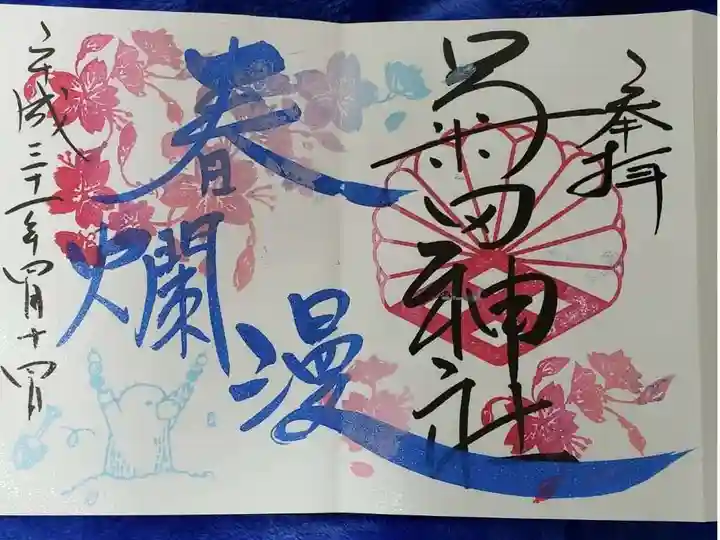 奉拝
菊田神社
春
爛
漫
平成三十一年四月十四日